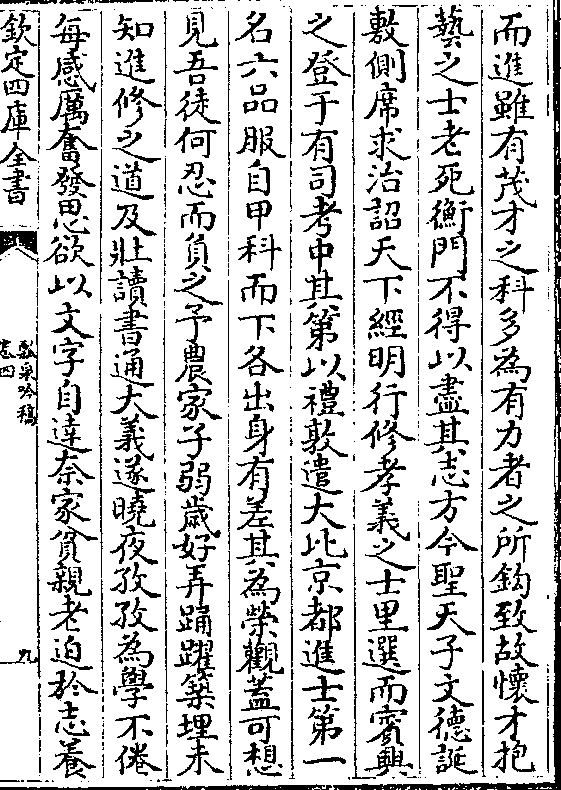 而進雖有茂才之科多為有力者之所鈎致故懷才抱
藝之士老死衡門不得以盡其志方今聖天子文德誕
敷側席求治詔天下經明行修孝義之士里選而賓興
之登于有司考中其第以禮敦遣大比京都進士第一
名六品服自甲科而下各出身有差其為榮觀蓋可想
見吾徒何忍而負之予農家子弱歲好弄踊躍築埋未
知進修之道及壯讀書通大義遂曉夜孜孜為學不倦
每感厲奮發思欲以文字自達奈家貧親老迫於志養
欽定四庫全書
瓢泉吟稿
卷四
九